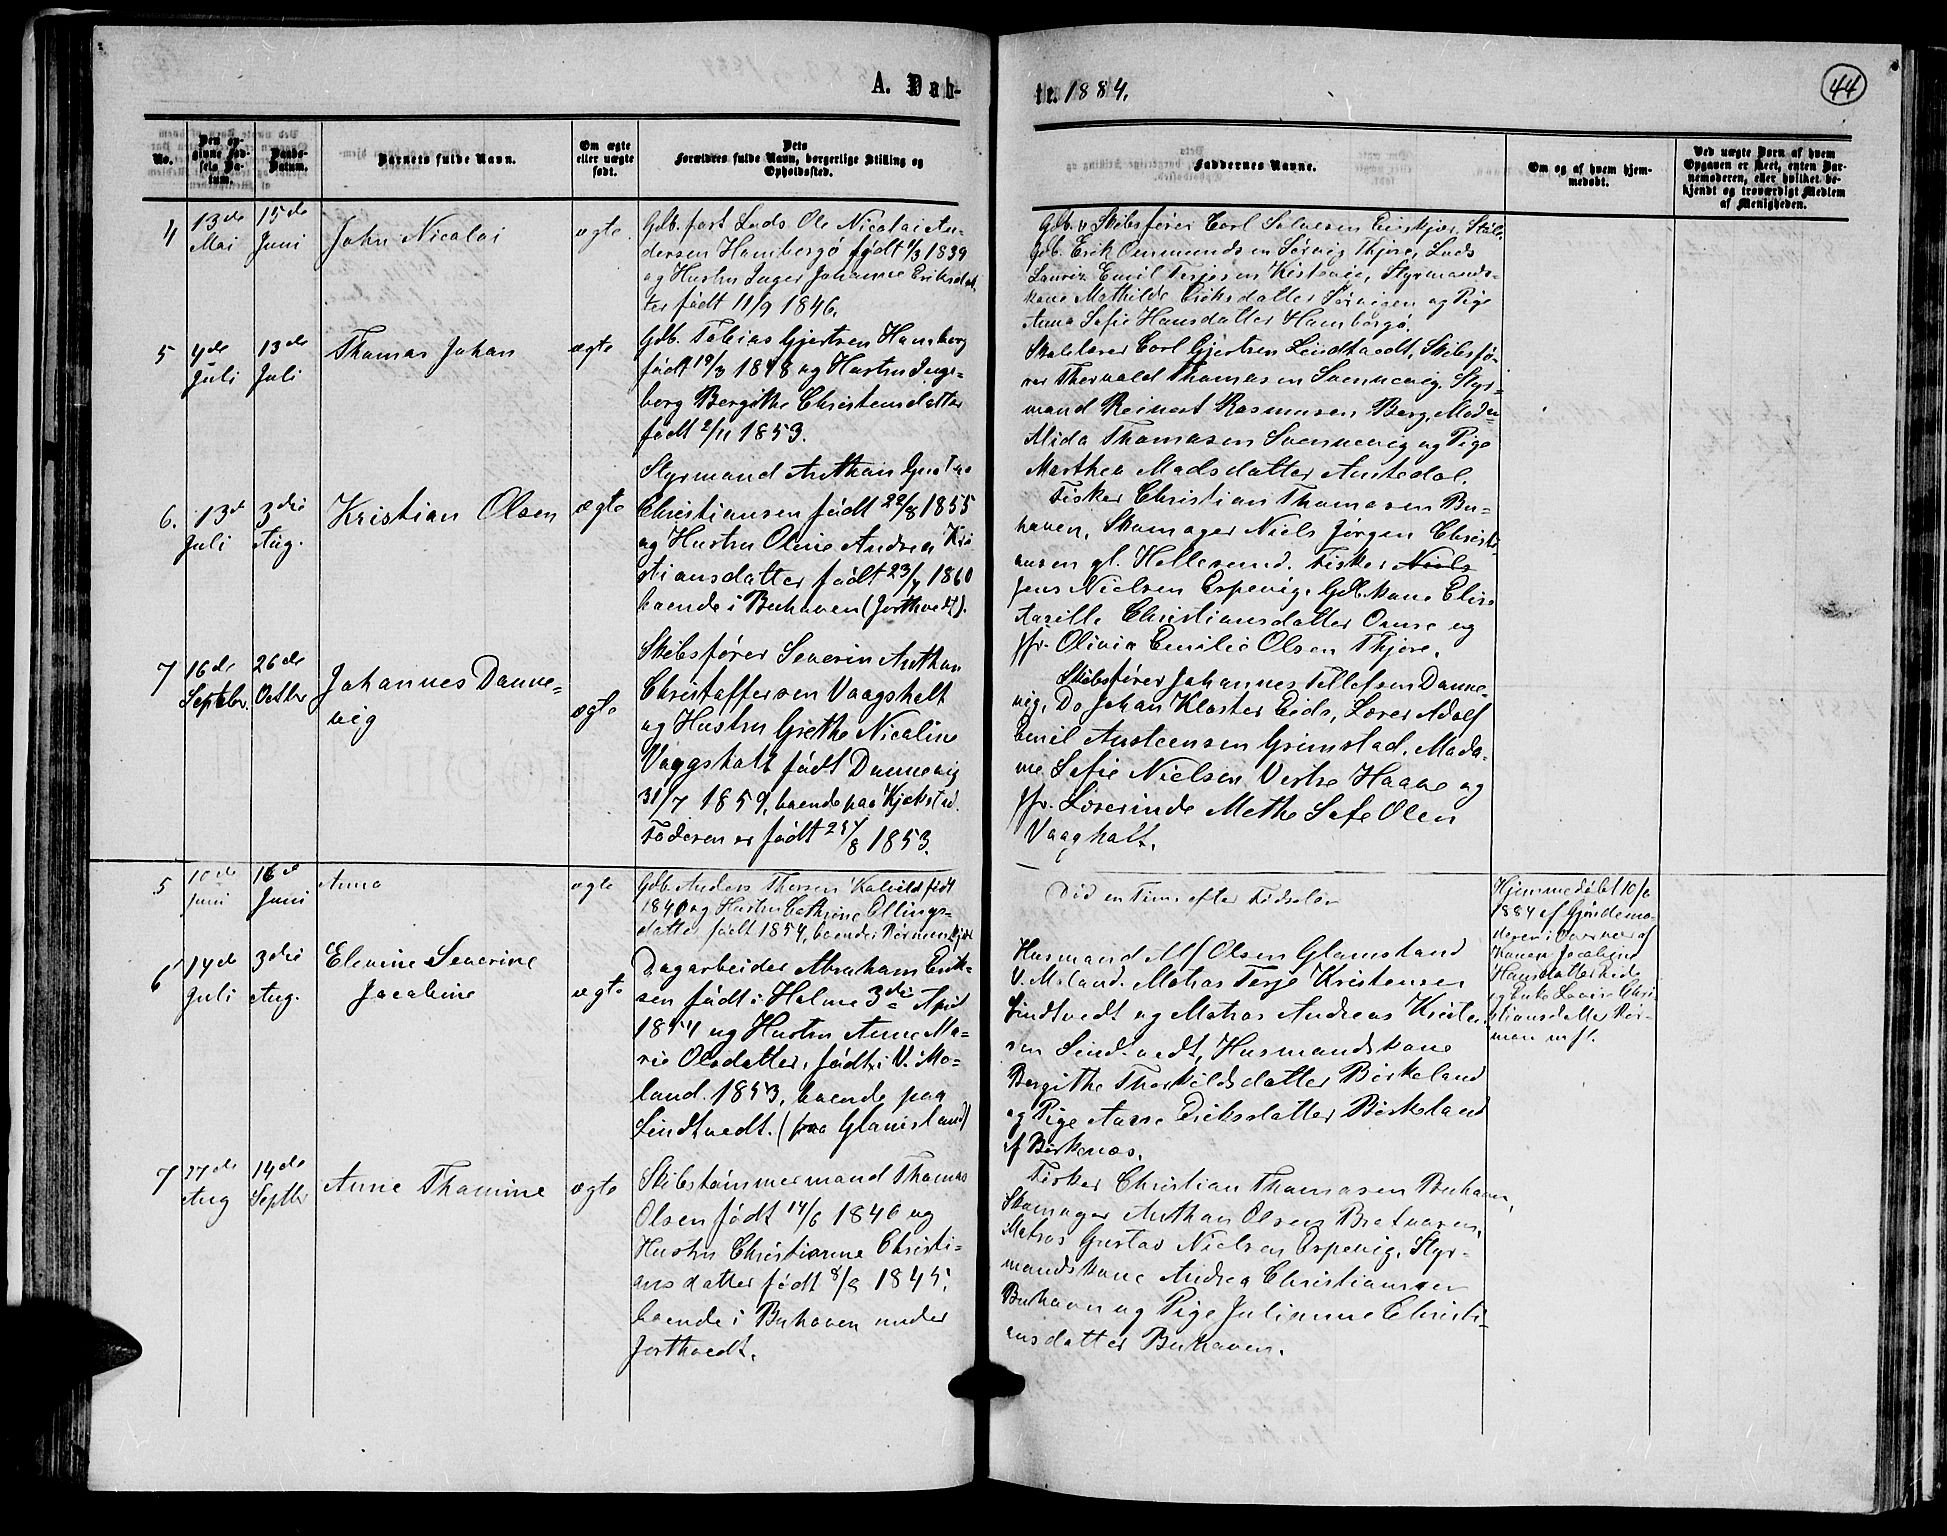 A. Dab-
te. 1884.
44
No.
Den opginne Fødsels Datum.
Daabs-Datum.
Barnets fulde Navn.
Om ægte eller uægte født.
Dets Forældres fulde Navn, borgerlige Stilling og Opholdssted.
Faddernes Navne.
Om og af hvem hjemmedøbt.
Ved uægte Børn af hvem Opgaven er skeet, enten Barnemoderen, eller hvilket bekjendt og troværdigt Medlem af Menigheden.
4
13de Mai
15de Juni
John Nicolai
ægte
Gdb. fort Lods Ole Nicolai An-
dersen Hamborgø født 1/3 1839
og Hustru Inger Johanne Eriksdat-
ter født 11/9 1846.
Gdb. v Skibsfører Carl Salvesen
Gdb. Erik Onmundsen Sørvig Thjøre, Lods
Lauriz Emil Terjesen Kistevig, Styrmands-
kone Mathilde Eriksdatter Sørvigen og Pige
Anna Sofie Hansdatter Hamborgø.
5
4de Juli
13de Juli
Thomas Johan
ægte
Gdb. Tobias Gjertsen Hamborg
født 19/3 1848 og Hustru Inge-
borg Bergithe Christensdatter
født 2/11 1853.
Skolelærer Carl Gjertsen Lindtvedt, Skibsfø-
rer Thorvald Thomasen Svennevig. Styr-
mand Reinert Rasmusen Berg, Madm
Mida Thomasen Svennevig og Pige
Marthea Madsdatter Austedal.
6.
13d Juli
3die Aug.
Kristian Olsen
ægte
Styrmand Anthon Gustav
Christiansen født 22/8 1855
og Hustru Oline Andrea Kri
stiansdatter født 23/7 1860
boende i Buhaven (Jorthvedt).
Fisker Christian Thomasen Bu-
haven, Skomager Niels Jørgen Christi-
ansen gl. Hellesund. Fisker Niels
Jens Nielsen Espevig. Gdb.kone Elise
Tarille Christiansdatter Omre og
Jfr. Olivia Emilie Olsen Thjøre.
7
16de Septbr.
26de Octbr
Johannes Danne-
vig
ægte
Skibsfører Severin Anthon
Christoffersen Vaagsholt
og Hustru Grethe Nicoline
Vaagsholt født Dannevig
31/7 1859, boende paa Kjøkstad.
Faderen er født 24/8 1853.
Skibsfører Johannes Tellefsen Danne-
vig, Do Johan Kloster Eide, Lærer Adolf
Emil Austensen Grimstad, Mada-
me Sofie Nielsen Vestre Haave og
Jfr. Lærerinde Methe Sofe Olsen
Vaagholt.
5
10de Juni
16d Juni
Anna
ægte
Gdb. Anders Thorsen Kalvild født
1840 og Hustru Cathrine Ellings-
datter, født 1854, boende i
Død en Time efter Fødselen
Hjemmedøbt 10/6
1884 af Gjordemo-
deren i Overvær af
Konen Jacobine
Hansdatter Eide
og Enke Lovise Chri-
stiansdatter Nør-
men m fl.
6
14de Juli
3die Aug.
Elevine Severine
Jacobine
ægte
Dagarbeider Abraham Erik-
sen født i Holme 3die April
1854 og Hustru Anne Ma-
rie Olsdatter, født i V. Mo-
land. 1853, boende paa
Lindtvedt. (paa Glamsland)
Husmand Alf Olsen Glamsland
V. Moland. Matros Terje Kristensen
Lindtvedt og Matros Andreas Kristen-
sen Lindtvedt, Husmandskone
Bergithe Thorkildsdatter Birkeland
og Pige Anne Eriksdatter Birkeland
af Birkenæs.
7
27de Aug
14de Septbr
Anne Thomine
ægte
Skibstømmermand Thomas
Olsen født 14/6 1840 og
Hustru Christianne Christi-
ansdatter født 8/8 1845.
boende i Buhaven under
Jorthvedt.
Fisker Christian Thomasen Buhaven,
Skomager Anthon Olsen
Matros Gustav Nielsen Espevig, Styr-
mandskone Andrea Christiansen
Buhaven og Pige Julianne Christi-
ansdatter Buhaven.